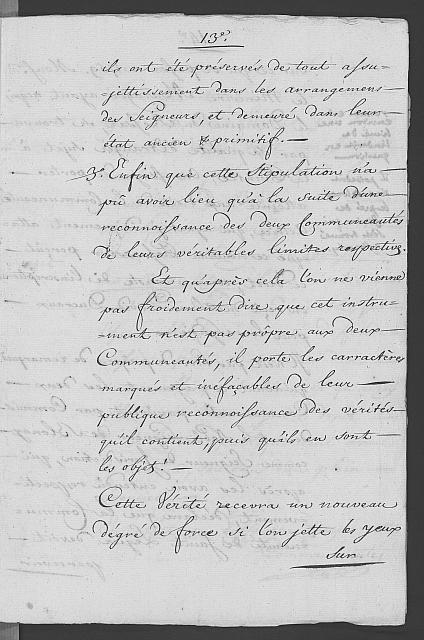 13º.
ils ont été préservés de tout assu-
jettissement dans les arrangemens
des Seigneurs, et demeuré dans leur
état ancien & primitif. —
3º. Enfin que cette Stipulation n'a —
pû avoir lieu qu'à la suite d'une
reconnoissance des deux Communeautés
de leurs véritables limites respective.
Et qu'après cela l'on ne vienne
pas froidement dire que cet instru-
ment n'est pas propre aux deux —
Communeautés, il porte les carractères
marqués et inefaçables de leur —
publique reconnoissance des vérités —
qu'il contient, puis qu'ils en sont —
les objet! —
Cette Vérité recevra un nouveau
dégré de force si l'on jette les yeux
Sur